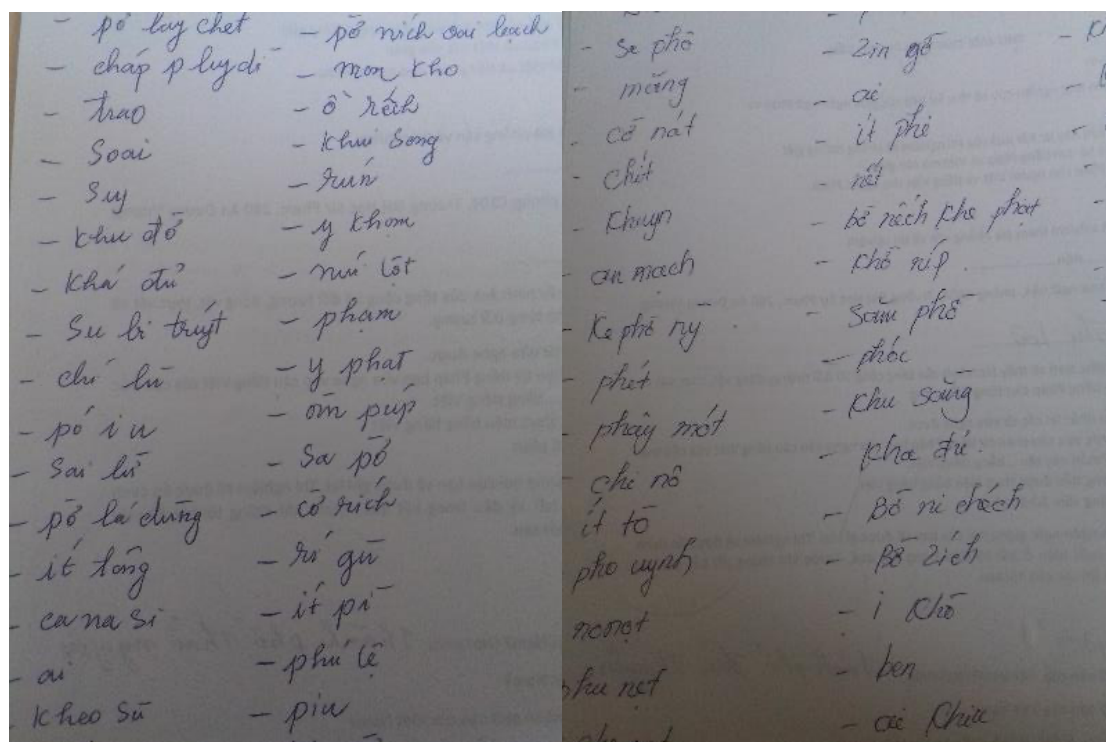 pở lay chet
- cháp p luy di
- trao
- Soai
- Suy
- khu đổ
- Khá đủ
- Su bi truýt
- chi lū
- pó i u
- Sai lū
- pở lá dũng
- ít tông
- ca na Si
- ai
- Kheo Sū
- pở ních oai leach
- mon kho
- ồ rếch
- Khui Song
- rún
- y khom
- núi lột
- phạm
- y phat
- ôm púp
- Sa pở
- cở rích
- rí gū
- ít pí
- phú lệ
- piu
- Se phô
- măng
- cở nát
- chít
- Khuyn
an mạch
- Ke phô ny
- phét
- phây mót
chi nô
ít tô
pho uynh
- Zin gô
- ai
- ít phê
- nết
- bô nếch khe phot
- Khô níp
- Sam phô
- phóc
- Khu sāng
- Kha đú
- Bô ni chách
- Bô Zích
- i Khô
- ben
- ai Khiu